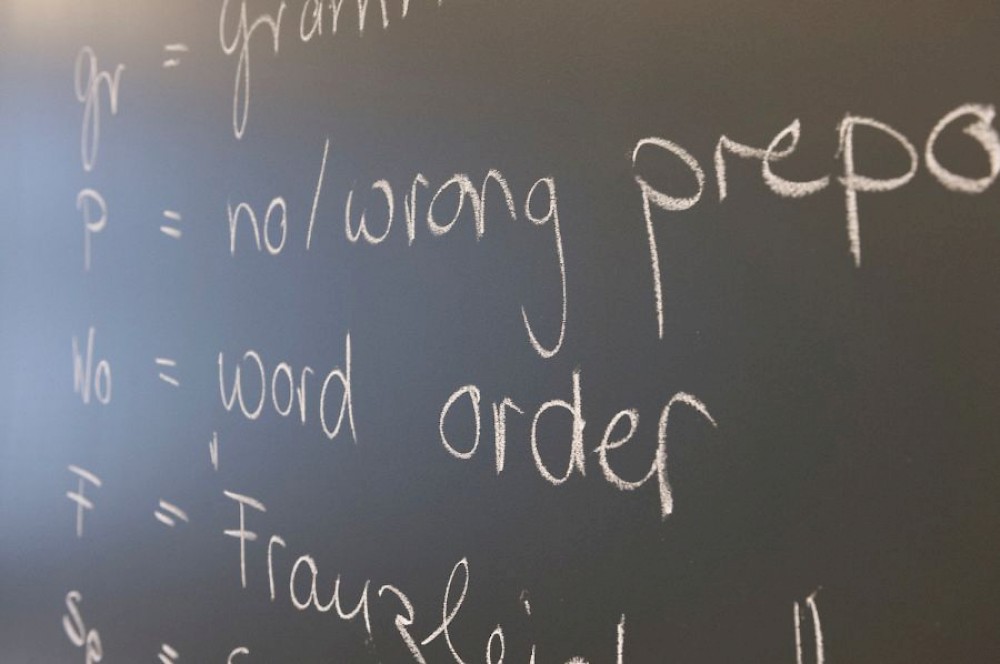 gr = gramm
p = no/wrong prepo
Wo = word order
F = "Frauzleid"
Sp = S